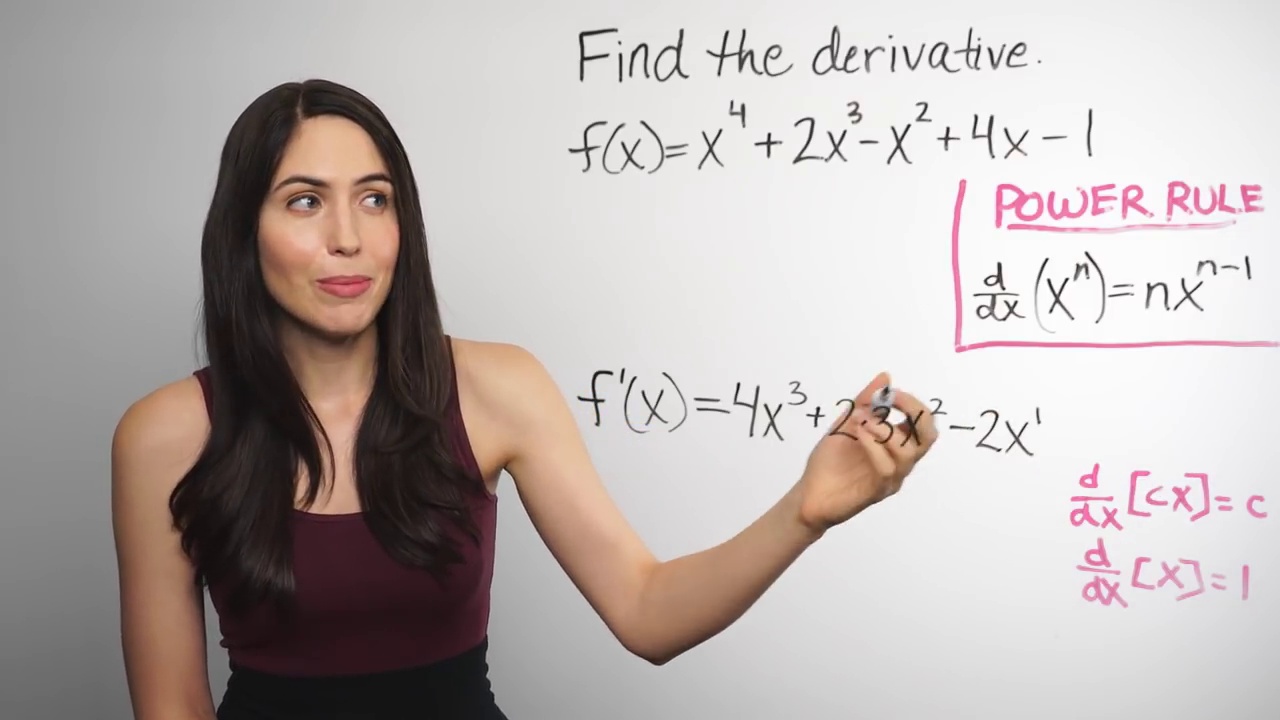 Find the derivative.
f(x)=x⁴+2x³-x²+4x-1
POWER RULE
d/dx(xⁿ)=nxⁿ⁻¹
f'(x)=4x³+2·3x²-2x¹
d/dx[cx]=c
d/dx[x]=1